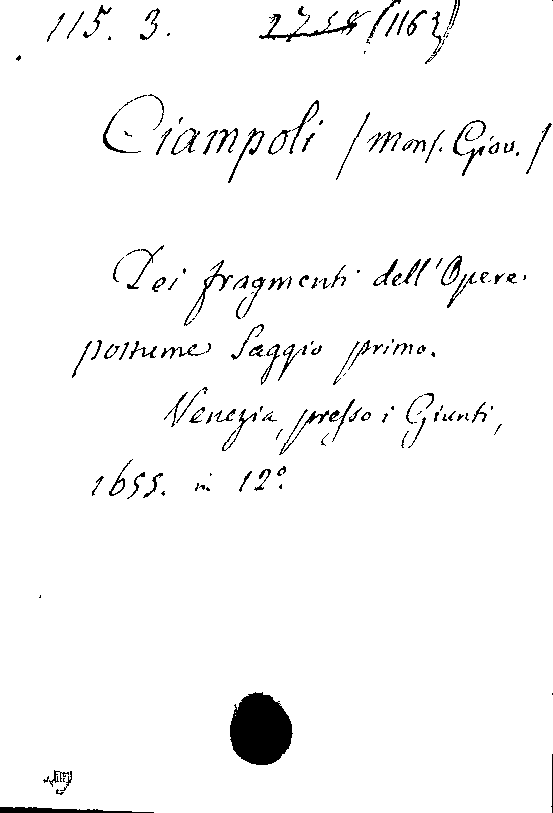 115. 3. 2758 (1163)
Ciampoli /Mons. Giov./
Dei fragmenti dell'Opere
postume Saggio primo.
Venezia, presso i Giunti,
1655. in 12º.